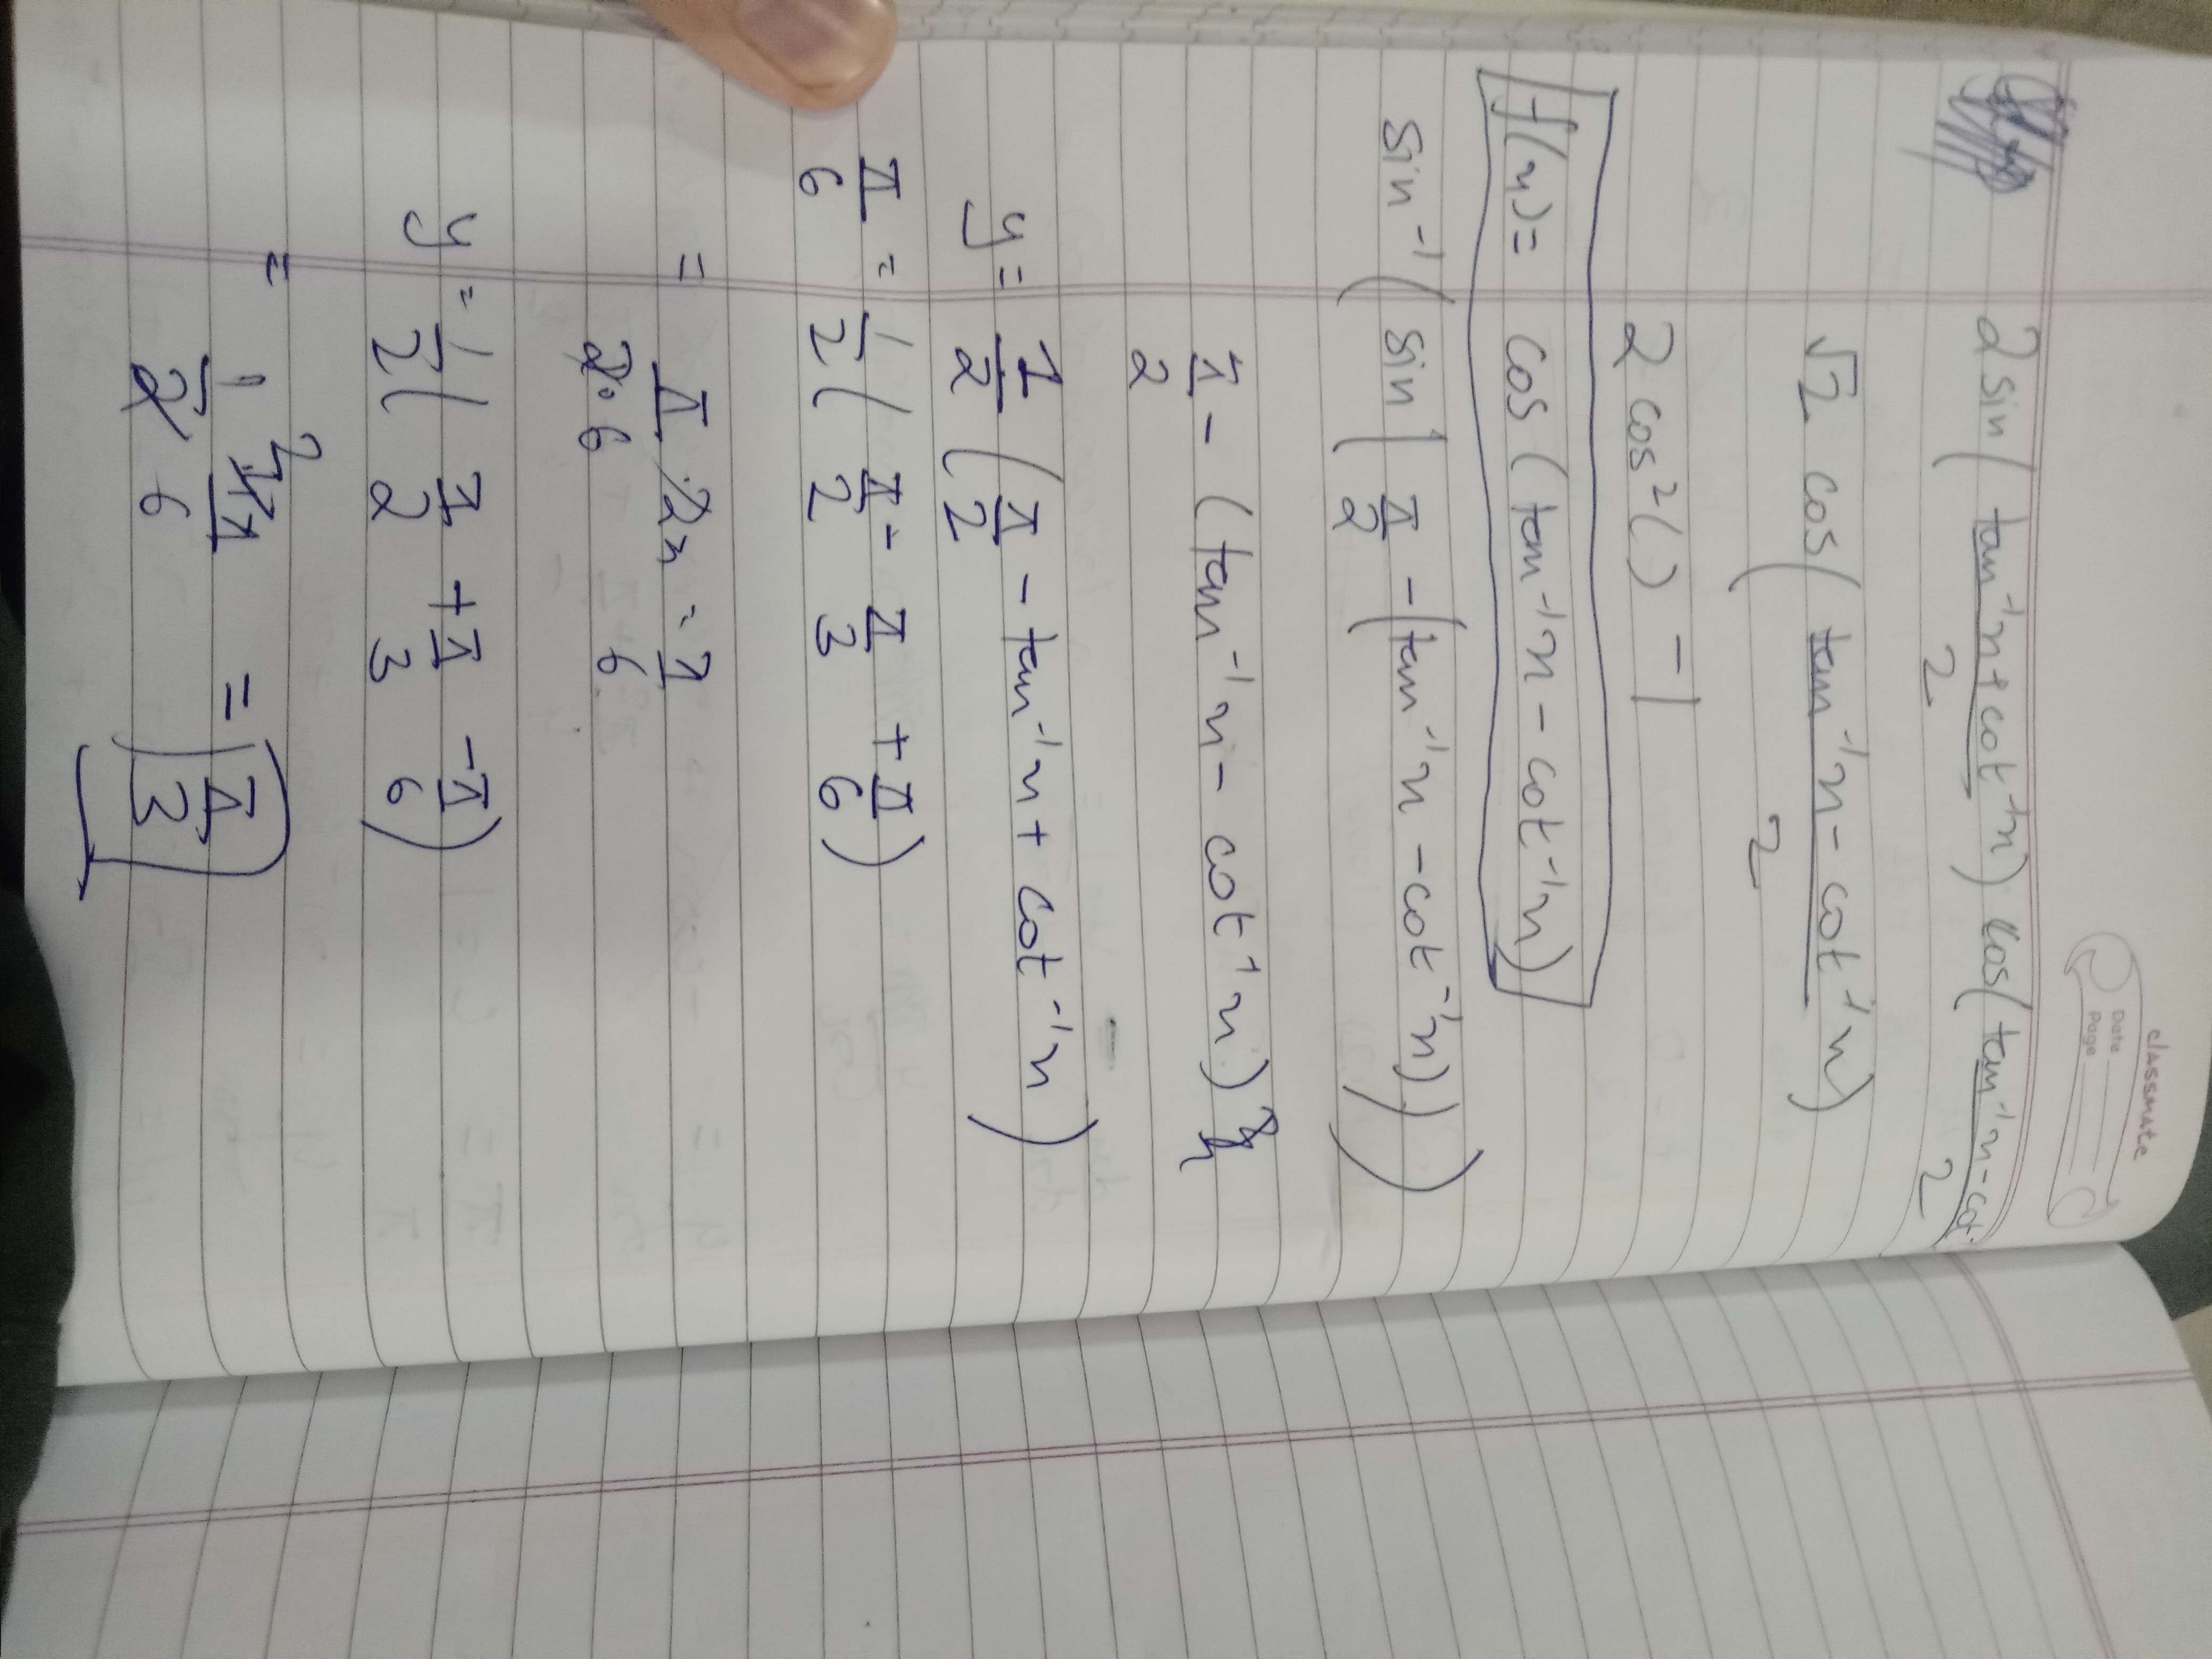 classmate
Date
Page
2 sin( tan⁻¹x + cot⁻¹x / 2 ) cos( tan⁻¹x - cot / 2
√2 cos( tan⁻¹x - cot⁻¹x / 2 )
2 cos²( ) - 1
f(x) = cos ( tan⁻¹x - cot⁻¹x )
sin⁻¹( sin( π/2 - (tan⁻¹x - cot⁻¹x) ) )
π/2 - (tan⁻¹x - cot⁻¹x)
y = 1/2 ( π/2 - tan⁻¹x + cot⁻¹x )
π/6 = 1/2 ( π/2 - π/3 + π/6 )
= π/2·6 2x = π/6
y = 1/2 ( π/2 + π/3 - π/6 )
= 1/2 4π/6 = π/3